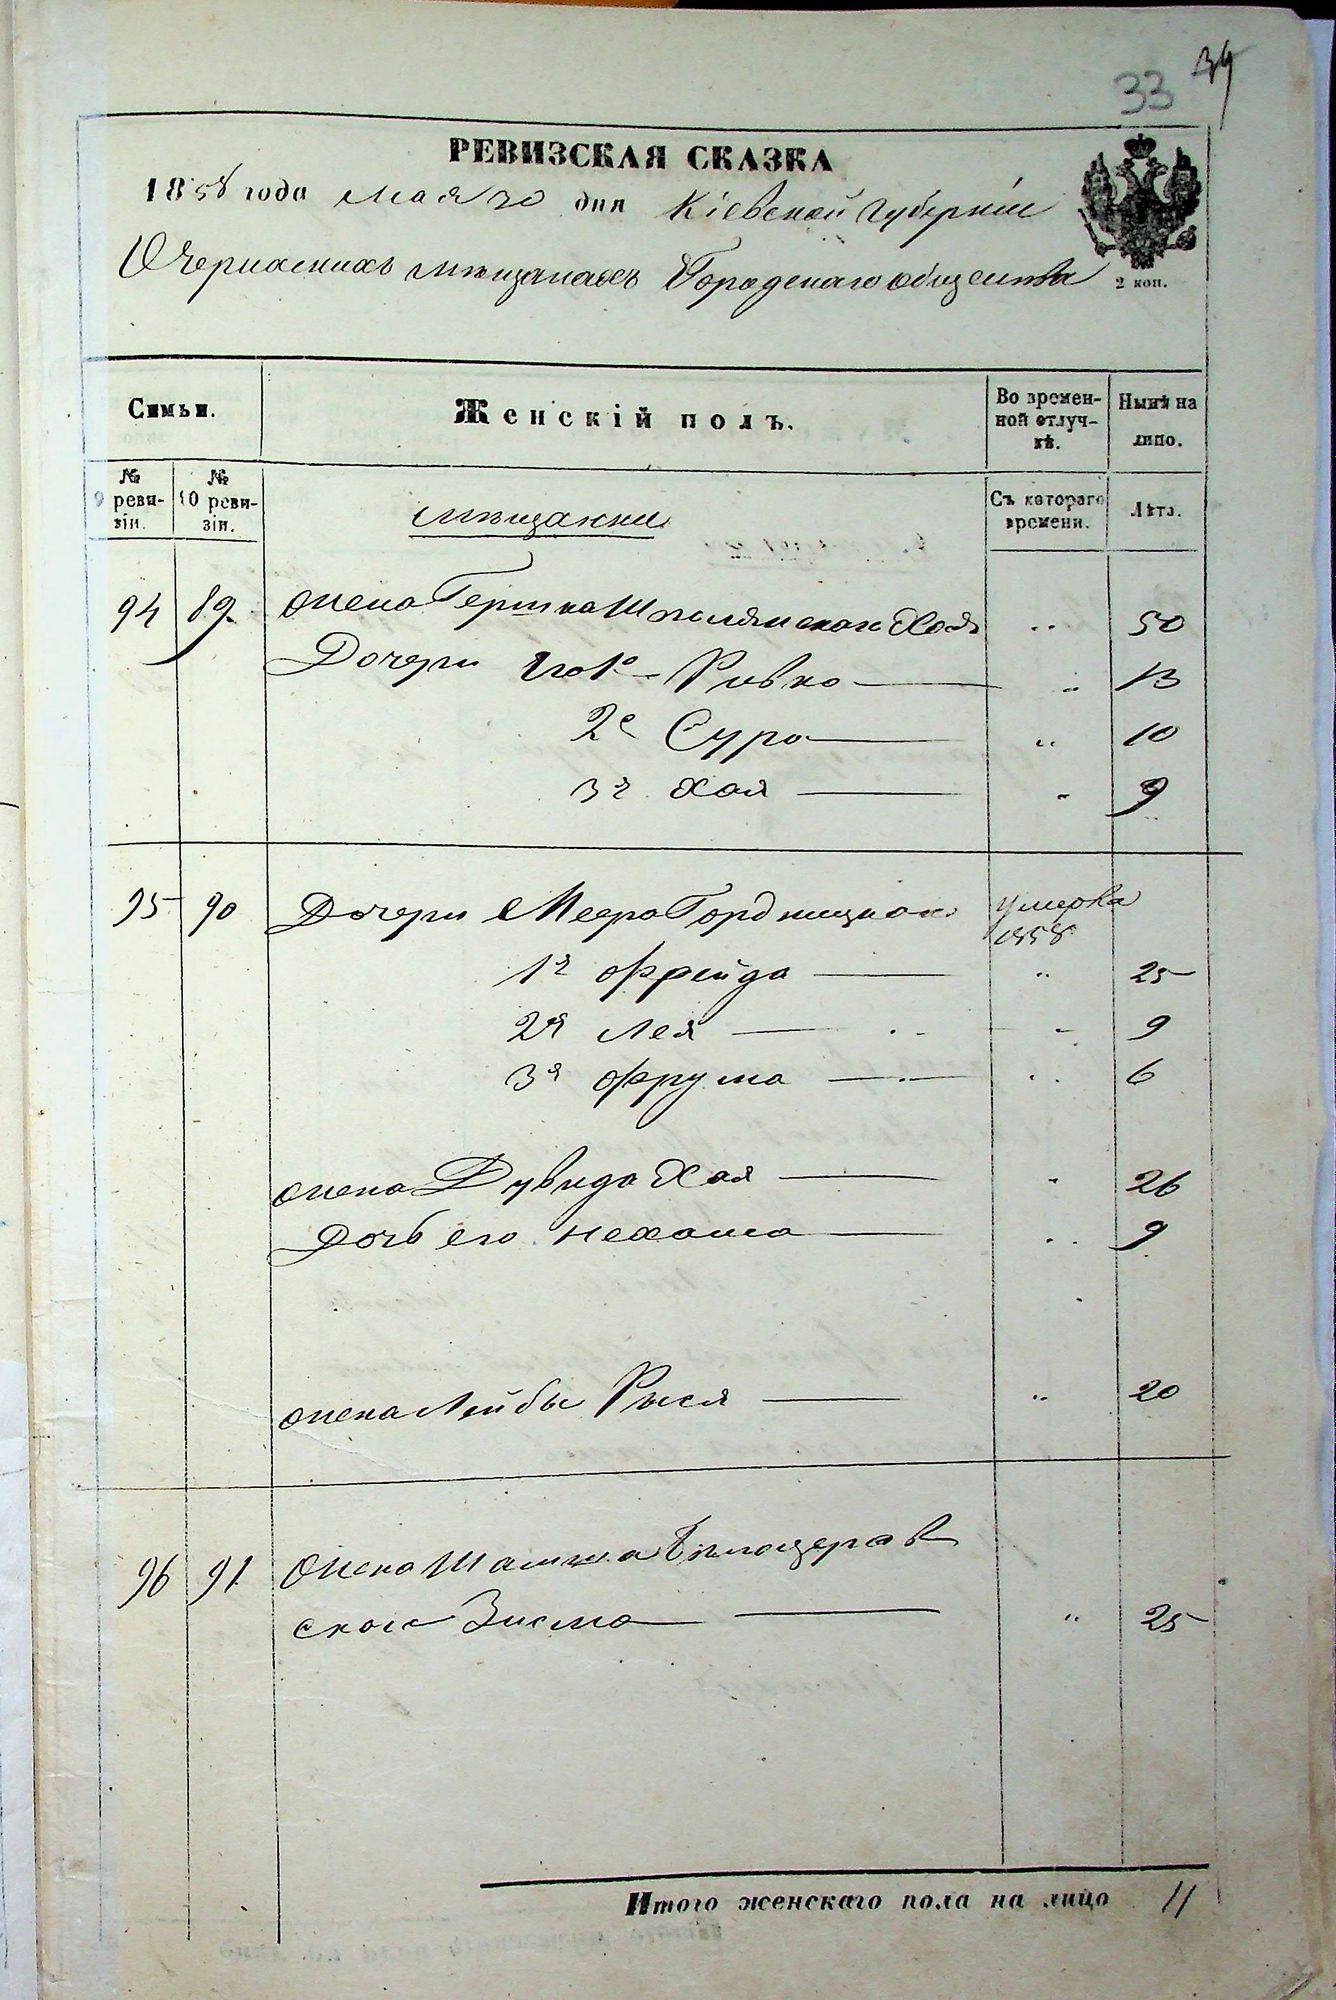 33 34
РЕВИЗСКАЯ СКАЗКА
1858 года мая 20 дня Кіевской губерніи
О Черкасскихъ мѣщанахъ Городскаго общества
2 коп.
Симьи. Женскій полъ. Во времен-ной отлуч-кѣ. Нынѣ на лицо.
№ 9 реви-зіи. № 10 реви-зіи. мѣщанки Съ котораго времени. Лѣта.
94 89. жена Гершка Шполянскаго Хая " 50
Дочери его 1я Ривка " 13
2я Сура " 10
3я Хая " 9
95 90 Дочери Меера умерла 1858
1я Фрейда " 25
2я Лея " 9
3я Фрума " 6
жена Дувида Хая " 26
Дочь его Нехама " 9
жена Лейбы Рыся " 20
96 91 жена Бѣлоцерков
скаго Зисла " 25
Итого женскаго пола на лицо 11